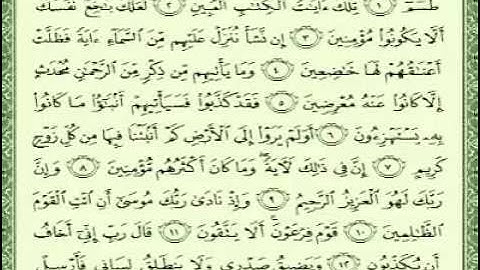 طسٓمٓ ١ تِلْكَ ءَايَٰتُ ٱلْكِتَٰبِ ٱلْمُبِينِ ٢ لَعَلَّكَ بَٰخِعٌ نَّفْسَكَ
أَلَّا يَكُونُوا۟ مُؤْمِنِينَ ٣ إِن نَّشَأْ نُنَزِّلْ عَلَيْهِم مِّنَ ٱلسَّمَآءِ ءَايَةً فَظَلَّتْ
أَعْنَٰقُهُمْ لَهَا خَٰضِعِينَ ٤ وَمَا يَأْتِيهِم مِّن ذِكْرٍ مِّنَ ٱلرَّحْمَٰنِ مُحْدَثٍ
إِلَّا كَانُوا۟ عَنْهُ مُعْرِضِينَ ٥ فَقَدْ كَذَّبُوا۟ فَسَيَأْتِيهِمْ أَنۢبَٰٓؤُا۟ مَا كَانُوا۟
بِهِۦ يَسْتَهْزِءُونَ ٦ أَوَلَمْ يَرَوْا۟ إِلَى ٱلْأَرْضِ كَمْ أَنۢبَتْنَا فِيهَا مِن كُلِّ زَوْجٍ
كَرِيمٍ ٧ إِنَّ فِى ذَٰلِكَ لَءَايَةً ۖ وَمَا كَانَ أَكْثَرُهُم مُّؤْمِنِينَ ٨ وَإِنَّ
رَبَّكَ لَهُوَ ٱلْعَزِيزُ ٱلرَّحِيمُ ٩ وَإِذْ نَادَىٰ رَبُّكَ مُوسَىٰٓ أَنِ ٱئْتِ ٱلْقَوْمَ
ٱلظَّٰلِمِينَ ١٠ قَوْمَ فِرْعَوْنَ ۚ أَلَا يَتَّقُونَ ١١ قَالَ رَبِّ إِنِّىٓ أَخَافُ
أَن يُكَذِّبُونِ ١٢ وَيَضِيقُ صَدْرِى وَلَا يَنطَلِقُ لِسَانِى فَأَرْسِلْ